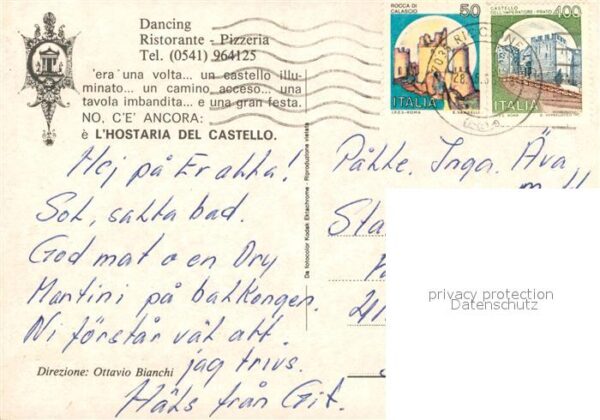 Dancing
Ristorante - Pizzeria
Tel. (0541) 964125
'era una volta... un castello illu-
minato... un camino acceso... una
tavola imbandita... e una gran festa.
NO, C'E' ANCORA:
è L'HOSTARIA DEL CASTELLO.
Hej på Er alla!
Sol, salta bad.
God mat o en Dry
Martini på balkongen.
Ni förstår väl att
jag trivs.
Häls från Git.
Direzione: Ottavio Bianchi
De fotocolor Kodak Ektachrome - Riproduzione vietata
ROCCA DI
CALASCIO
50
ITALIA
CASTELLO
DELL'IMPERATORE - PRATO
400
ITALIA
RICCIONE
Påkke. Inga. Äva
privacy protection
Datenschutz